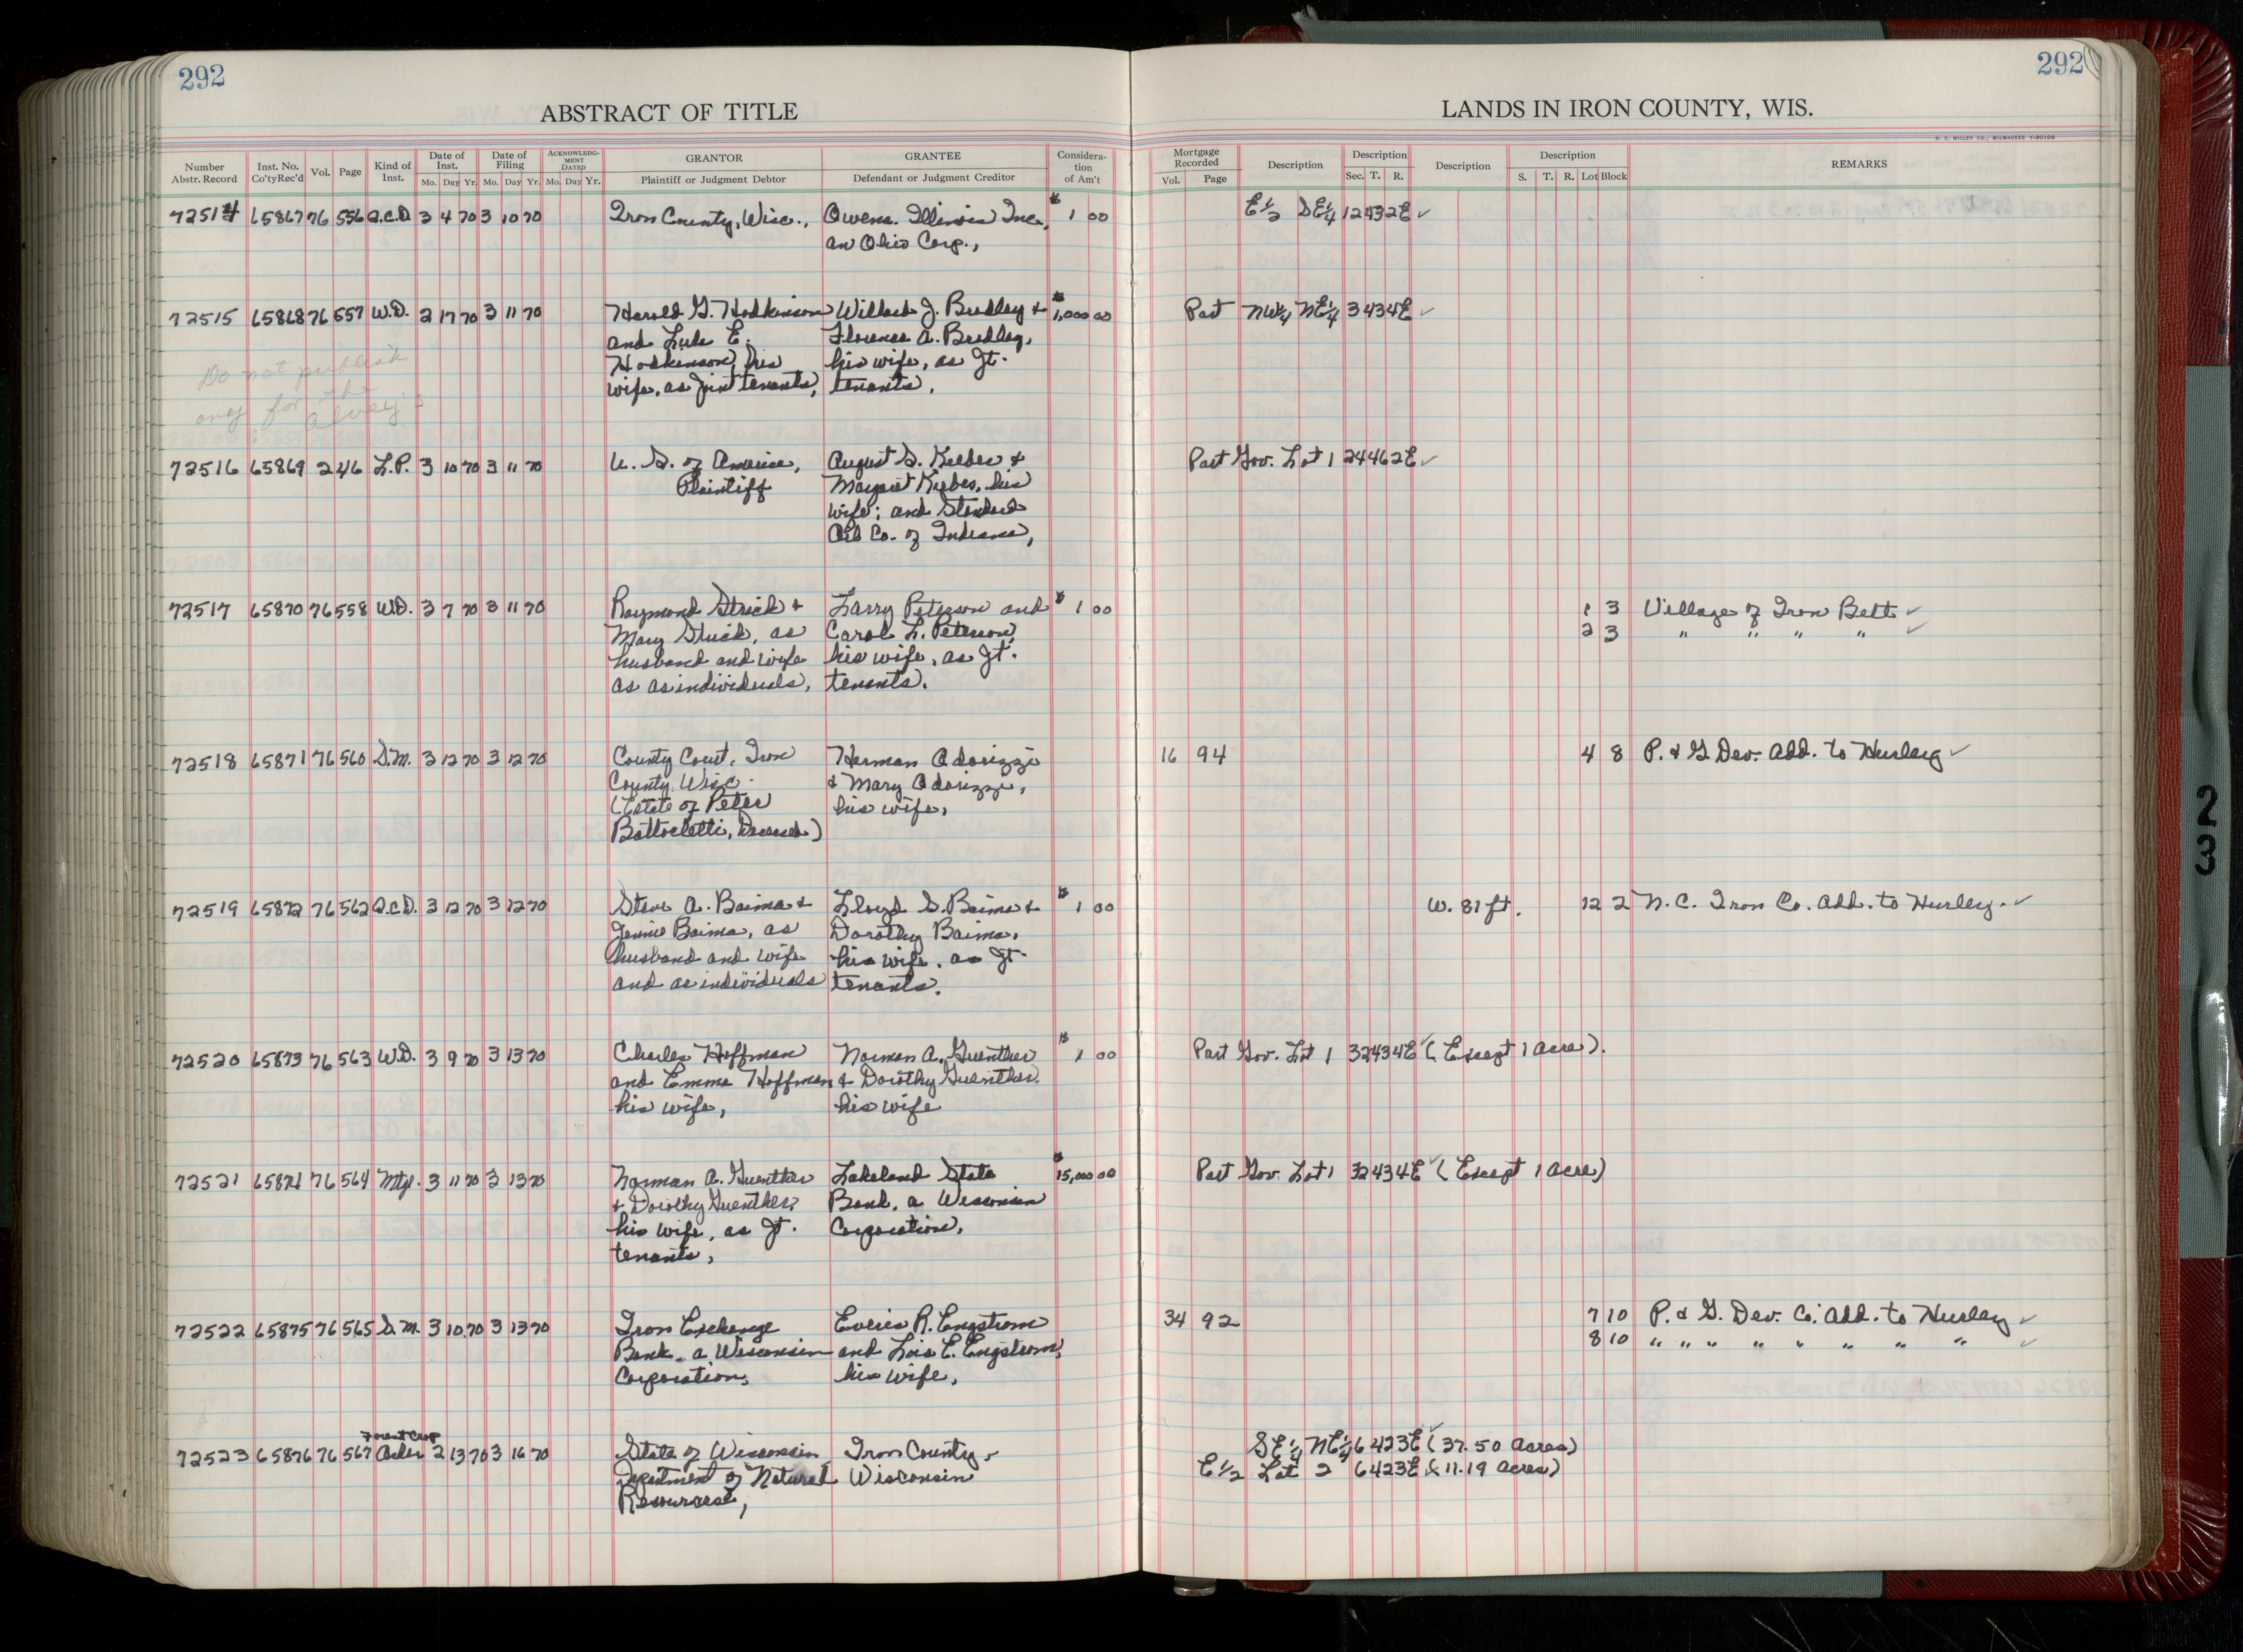 292
292
ABSTRACT OF TITLE
LANDS IN IRON COUNTY, WIS.
H. C. MILLER CO., MILWAUKEE
Number Abstr. Record Inst. No. Co'ty Rec'd Vol. Page Kind of Inst. Date of Inst. Mo. Day Yr. Date of Filing Mo. Day Yr. ACKNOWLEDGMENT DATED Mo. Day Yr. GRANTOR Plaintiff or Judgment Debtor GRANTEE Defendant or Judgment Creditor Consideration of Am't
Mortgage Recorded Vol. Page Description Description Sec. T. R. Description Description S. T. R. Lot Block REMARKS
72514 65867 76 556 Q.C.D. 3 4 70 3 10 70 Iron County, Wisc., Owens. Illinois Inc. $1 00 E½ SE¼ 12 43 2E ✓
an Ohio Corp.,
72515 65868 76 557 W.D. 2 17 70 3 11 70 Harold G. Hodkinson Willard J. Bradley + $1,000 00 Part NW¼ NE¼ 3 43 4E ✓
and Lula E. Florence A. Bradley,
Hodkinson, his his wife, as Jt.
wife, as joint tenants, tenants.
Do not publish
any for the
72516 65869 2 46 L.P. 3 10 70 3 11 70 U. S. of America, August S. + Part Gov. Lot 1 24 46 2E ✓
Plaintiff Margaret his
wife; and Standard
Oil Co. of Indiana,
72517 65870 76 558 W.D. 3 7 70 3 11 70 Raymond + Larry Peterson and $1 00 1 3 Village of Iron Belt ✓
Mary as Carol L. Peterson, 2 3 " " " " ✓
husband and wife his wife, as Jt.
as as individuals, tenants.
72518 65871 76 560 S.M. 3 12 70 3 12 70 County Court, Iron Herman Adorizzi 16 94 4 8 P. & G Dev. Add. to Hurley ✓
County, Wisc. & Mary Adorizzi,
(Estate of Peter his wife,
Bottocletti, Deceased)
72519 65872 76 562 Q.C.D. 3 12 70 3 12 70 Steve A. Baima + Lloyd S. Baima + $1 00 W. 81 ft. 12 2 N. C. Iron Co. Add. to Hurley. ✓
Jennie Baima, as Dorothy Baima,
husband and wife his wife, as Jt.
and as individuals tenants.
72520 65873 76 563 W.D. 3 9 70 3 13 70 Charles Hoffman Norman A. Guenther $1 00 Part Gov. Lot 1 32 43 4E ✓ (Except 1 acre).
and Emma Hoffman & Dorothy Guenther.
his wife, his wife
72521 65874 76 564 Mtg. 3 11 70 3 13 70 Norman A. Guenther Lakeland State $15,000 00 Part Gov. Lot 1 32 43 4E ✓ (Except 1 acre)
& Dorothy Guenther, Bank, a Wisconsin
his wife, as Jt. Corporation,
tenants,
72522 65875 76 565 S.M. 3 10 70 3 13 70 Iron Exchange R. Engstrom 34 92 7 10 P. & G. Dev. Co. Add. to Hurley ✓
Bank, a Wisconsin and Lois E. Engstrom, 8 10 " " " " " " " " ✓
Corporation, his wife,
Forest Crop
72523 65876 76 567 Order 2 13 70 3 16 70 State of Wisconsin Iron County, SE¼ NE¼ 6 42 3E ✓ (37.50 Acres)
Department of Natural Wisconsin E½ Lot 2 6 42 3E (11.19 Acres)
Resources,
23